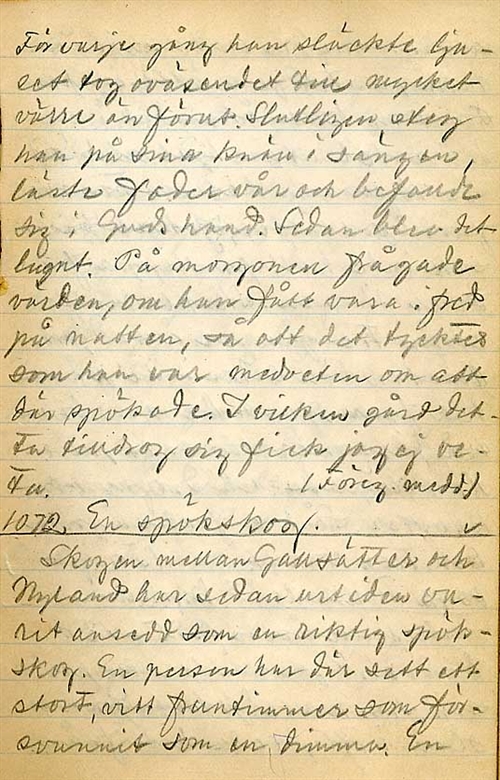 För varje gång han släckte lju-
set tog oväsendet till mycket
värre än förut. Slutligen steg
han på sina knän i sängen,
läste Fader vår och befallde
sig i Guds hand. Sedan blev det
lugnt. På morgonen frågade
värden, om han fått vara i fred
på natten, så att det tycktes
som han var medveten om att
där spökade. I vilken gård det-
ta tilldrog sig fick jag ej ve-
ta. (Föreg. medd.)
1072. En spökskog.
Skogen mellan Gallsätter och
Nyland har sedan urtiden va-
rit ansedd som en riktig spök-
skog. En person har där sett ett
stort, vitt fruntimmer som för-
svunnit som en dimma. En